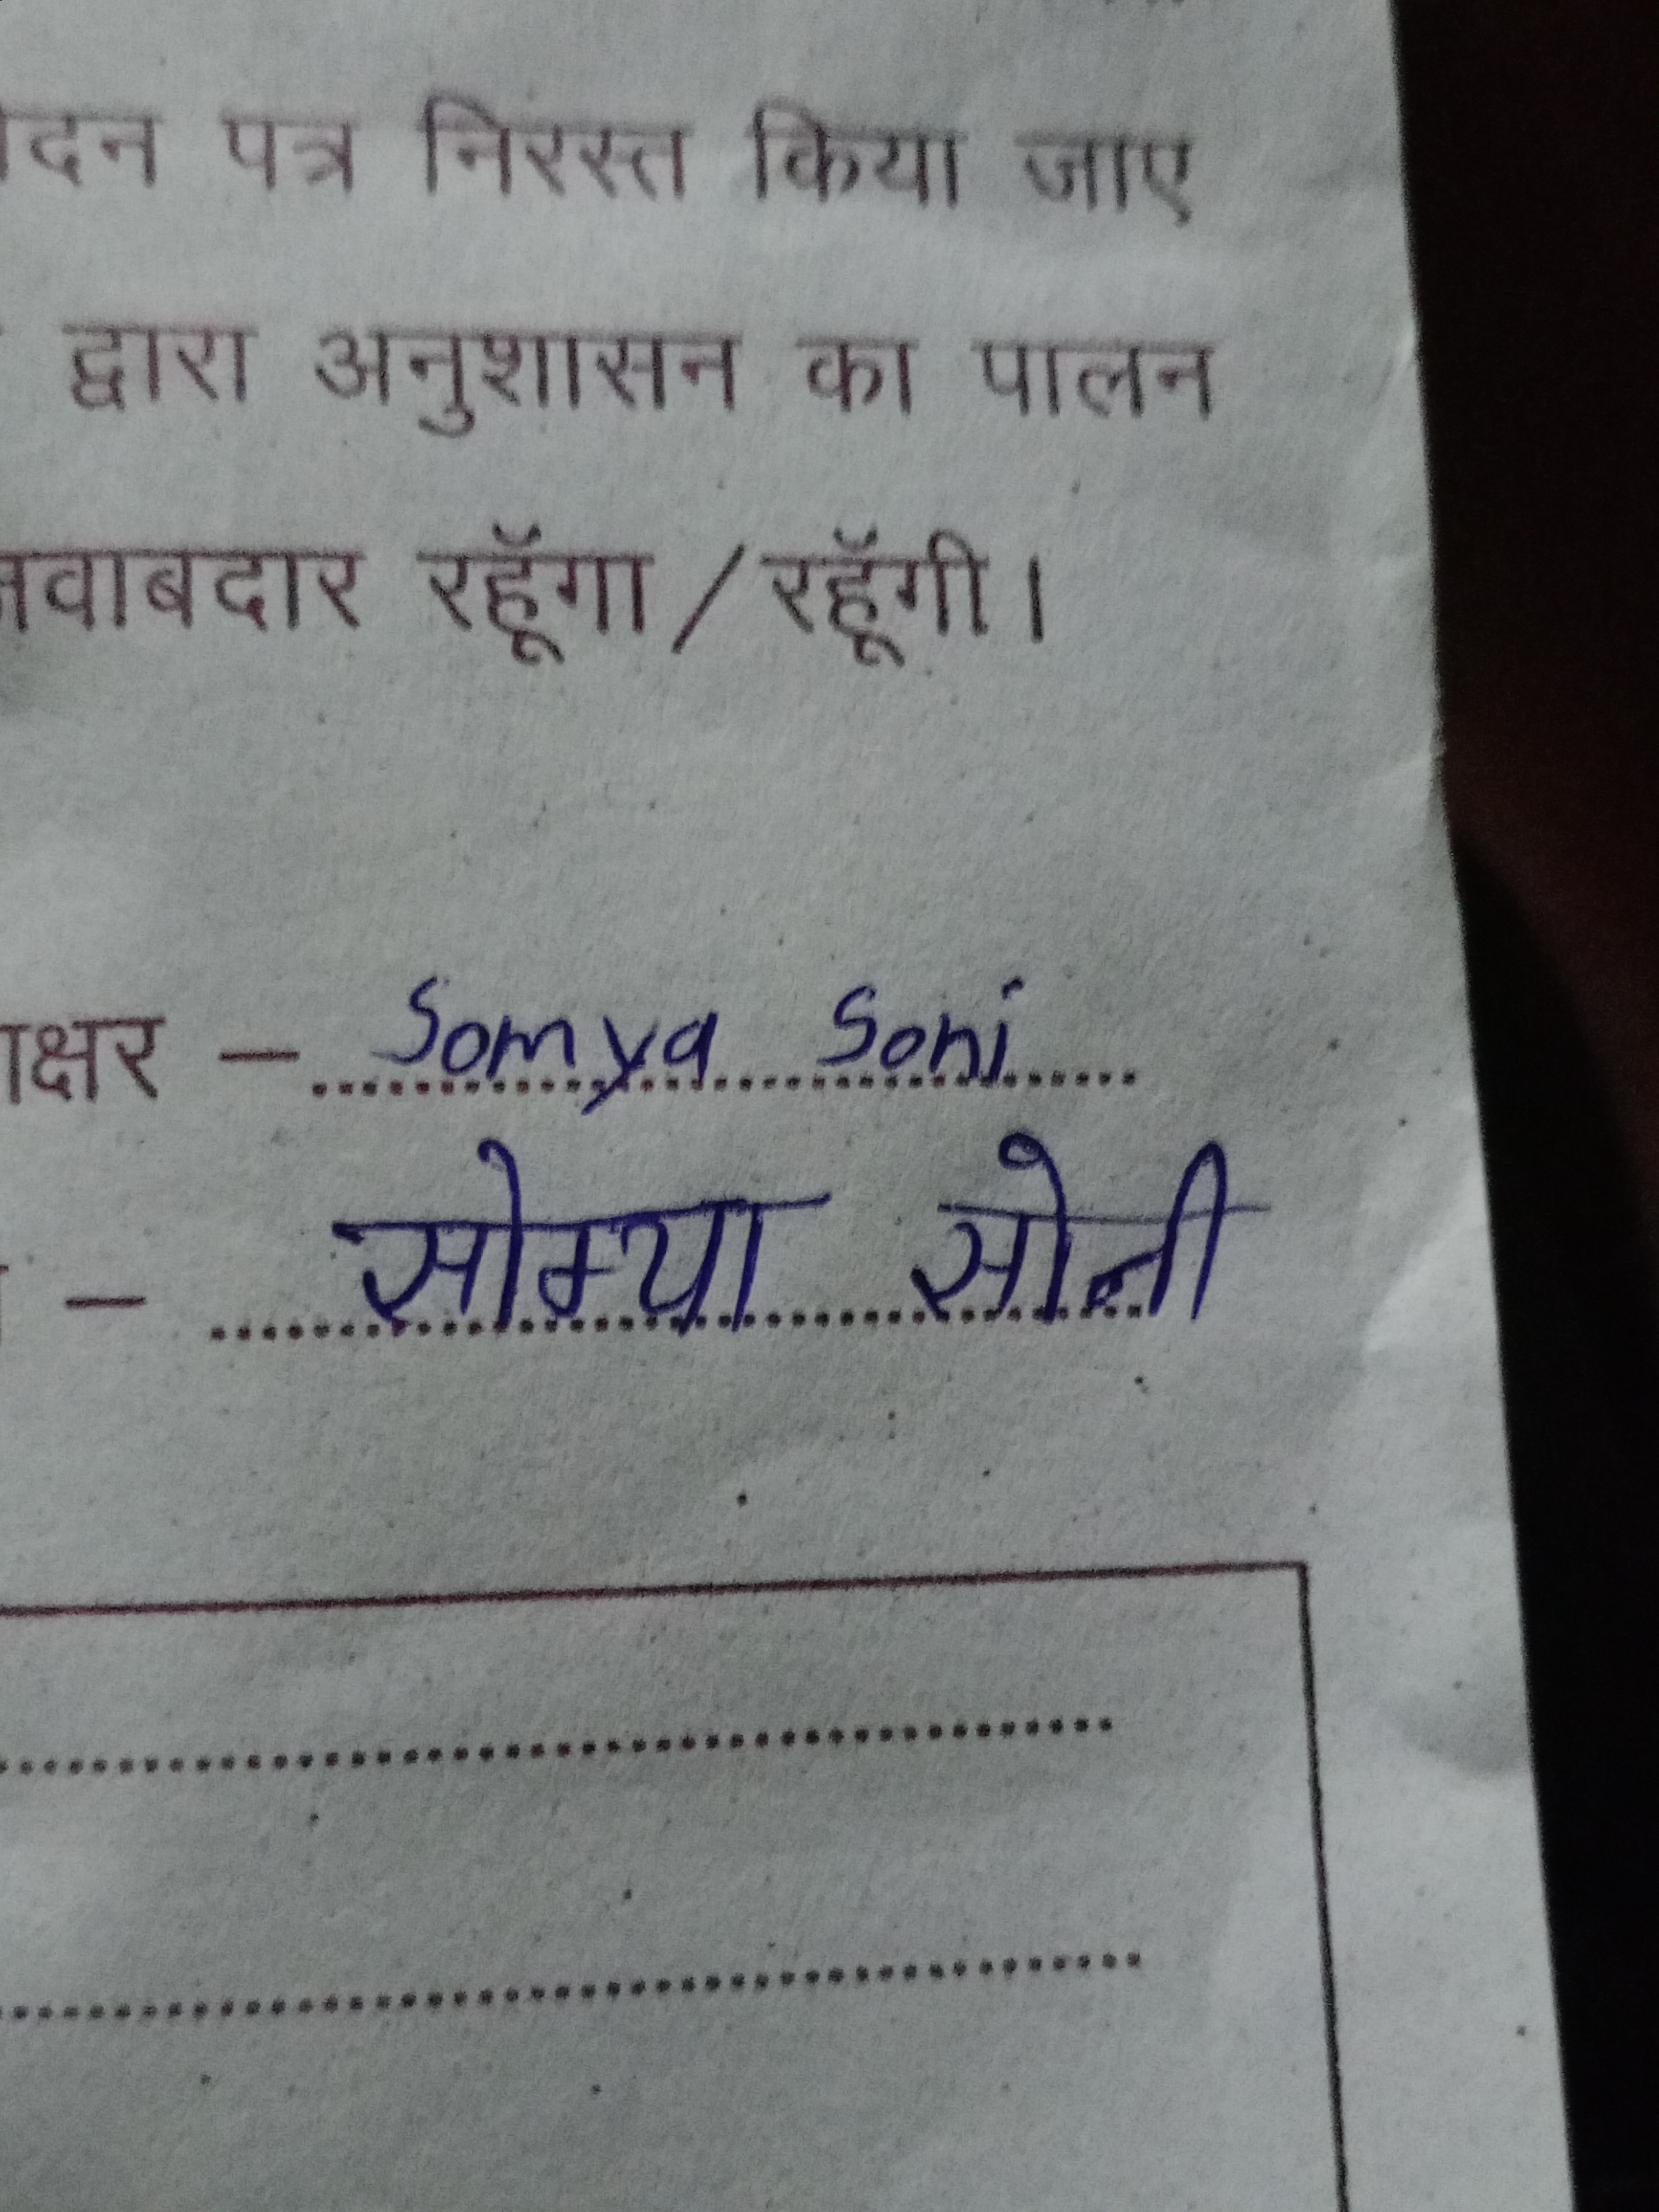 पत्र निरस्त किया जाए
द्वारा अनुशासन का पालन
जवाबदार रहूँगा / रहूँगी।
– Somya Soni
– सोम्या सोनी